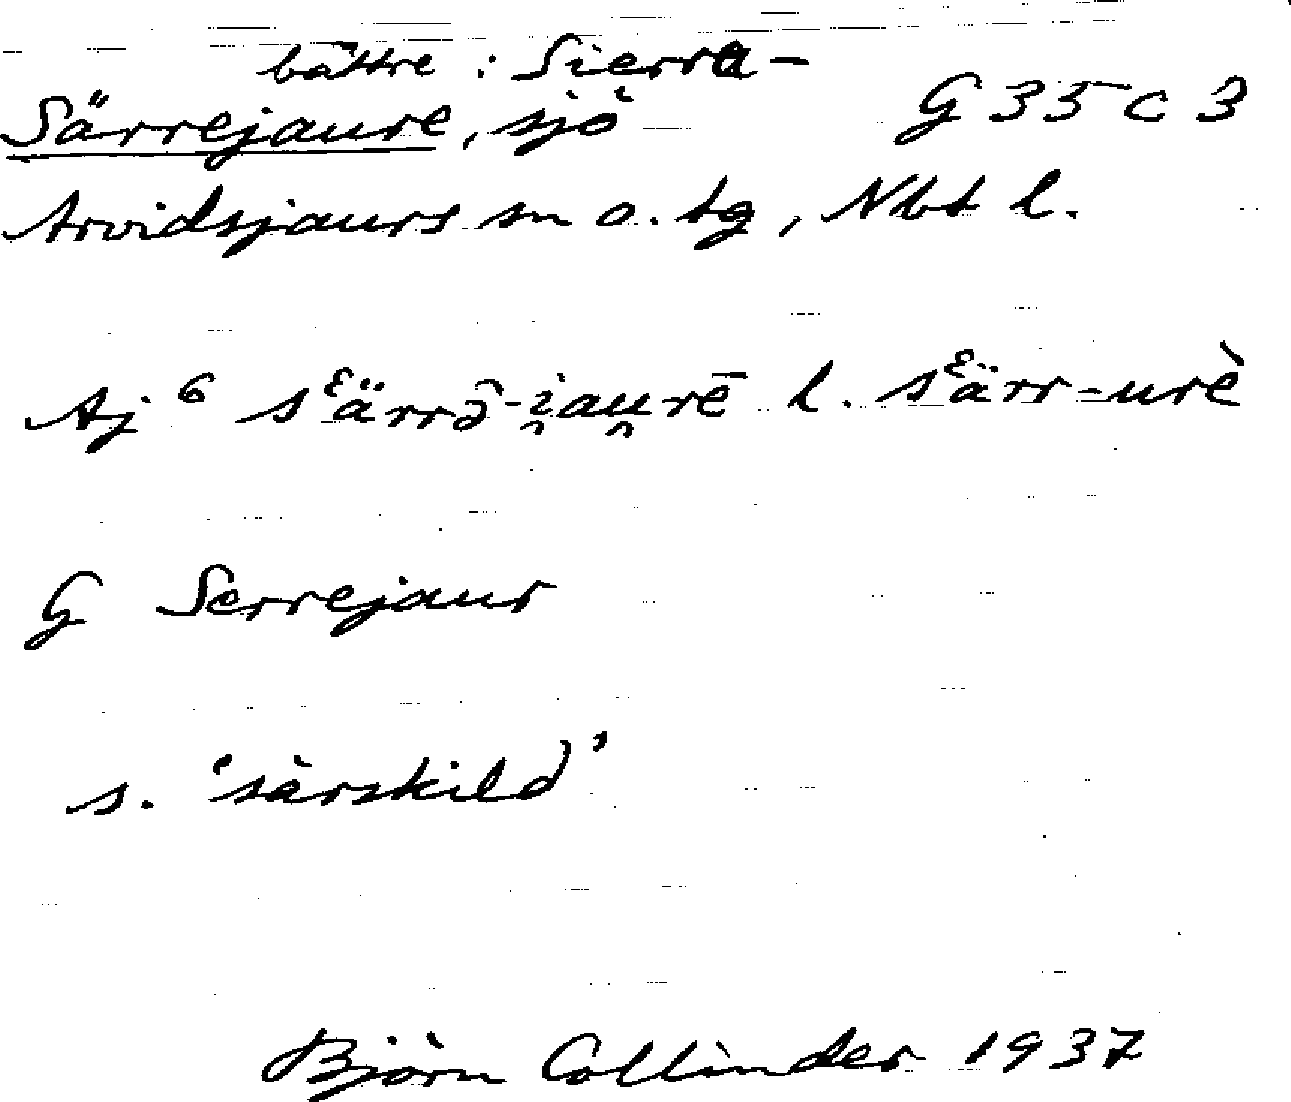 bättre : Sierra-
Särrejaure, sjö G 35 c 3
Arvidsjaurs sn o. tg, Nbt l.
Aj 6 sᵋärrə̄-i̯au̯rē l. sᵋärr-urè
G Serrejaur
s. 'särskild'
Björn Collinder 1937